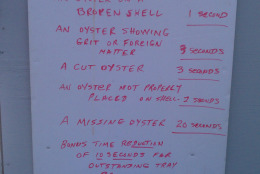 BROKEN SHELL 1 SECOND
AN OYSTER SHOWING
GRIT OR FOREIGN
MATTER 3 SECONDS
A CUT OYSTER 3 SECONDS
AN OYSTER NOT PROPERLY
PLACED ON SHELL- 2 SECONDS
A MISSING OYSTER 20 SECONDS
BONUS TIME REDUCTION
OF 10 SECONDS FOR
OUTSTANDING TRAY